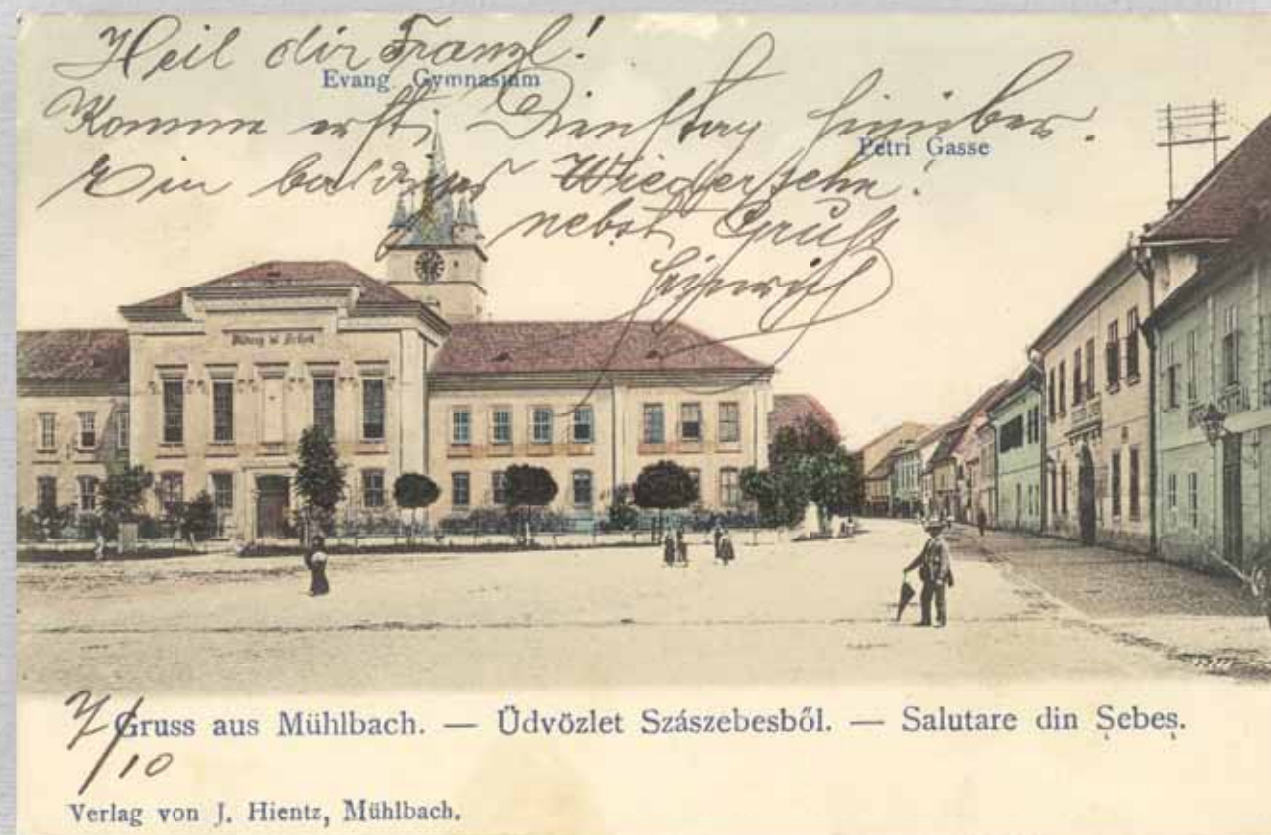 Heil dir Franzl!
Evang Gymnasium
Komme erst Dienstag hinüber.
Petri Gasse
Ein baldiges Wiedersehn!
nebst Gruß
Heinrich
Bildung ist Freiheit
7/10
Gruss aus Mühlbach. — Üdvözlet Szászebesből. — Salutare din Șebeș.
Verlag von J. Hientz, Mühlbach.